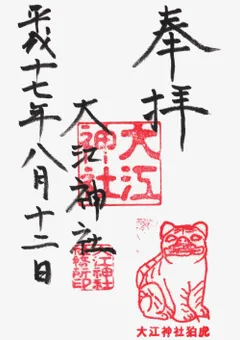 奉拝
大江神社
平成十七年八月十二日
大江
神社
大江神社
社務所印
大江神社狛虎